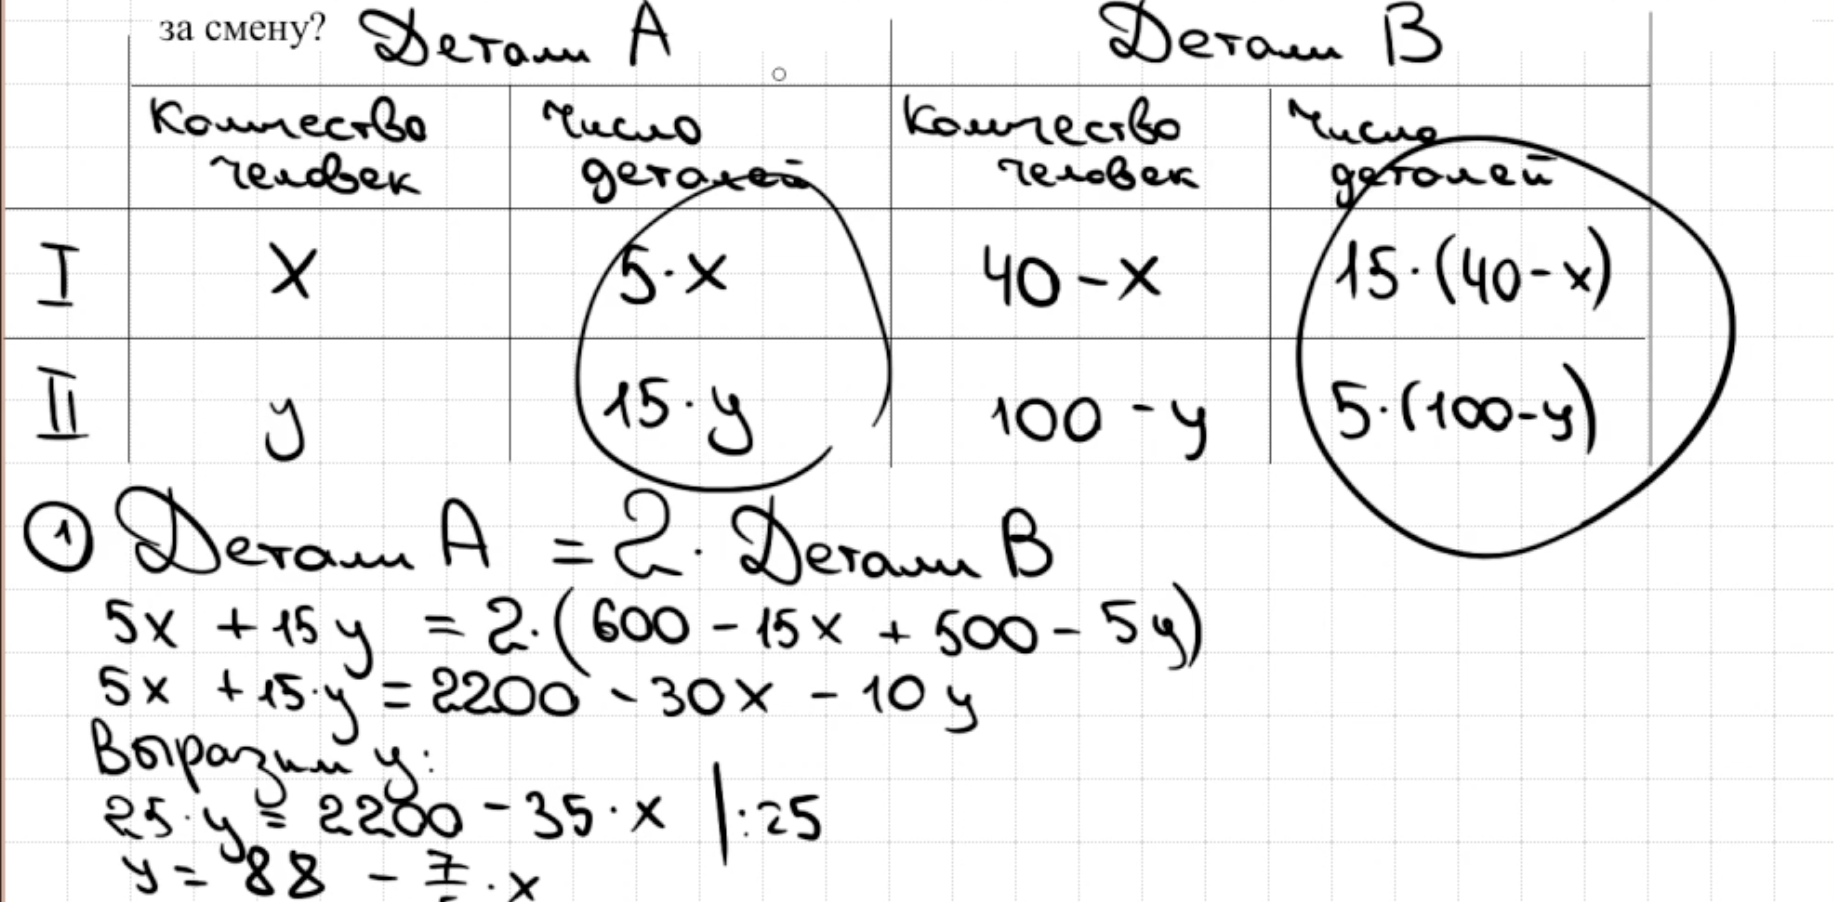 за смену? Детали А Детали В
Количество человек Число деталей Количество человек Число деталей
I x 5·x 40-x 15·(40-x)
II y 15·y 100-y 5·(100-y)
① Детали А = 2· Детали В
5x + 15y = 2·(600 - 15x + 500 - 5y)
5x + 15·y = 2200 - 30x - 10y
Выразим y:
25·y = 2200 - 35·x |:25
y = 88 - 7/5·x